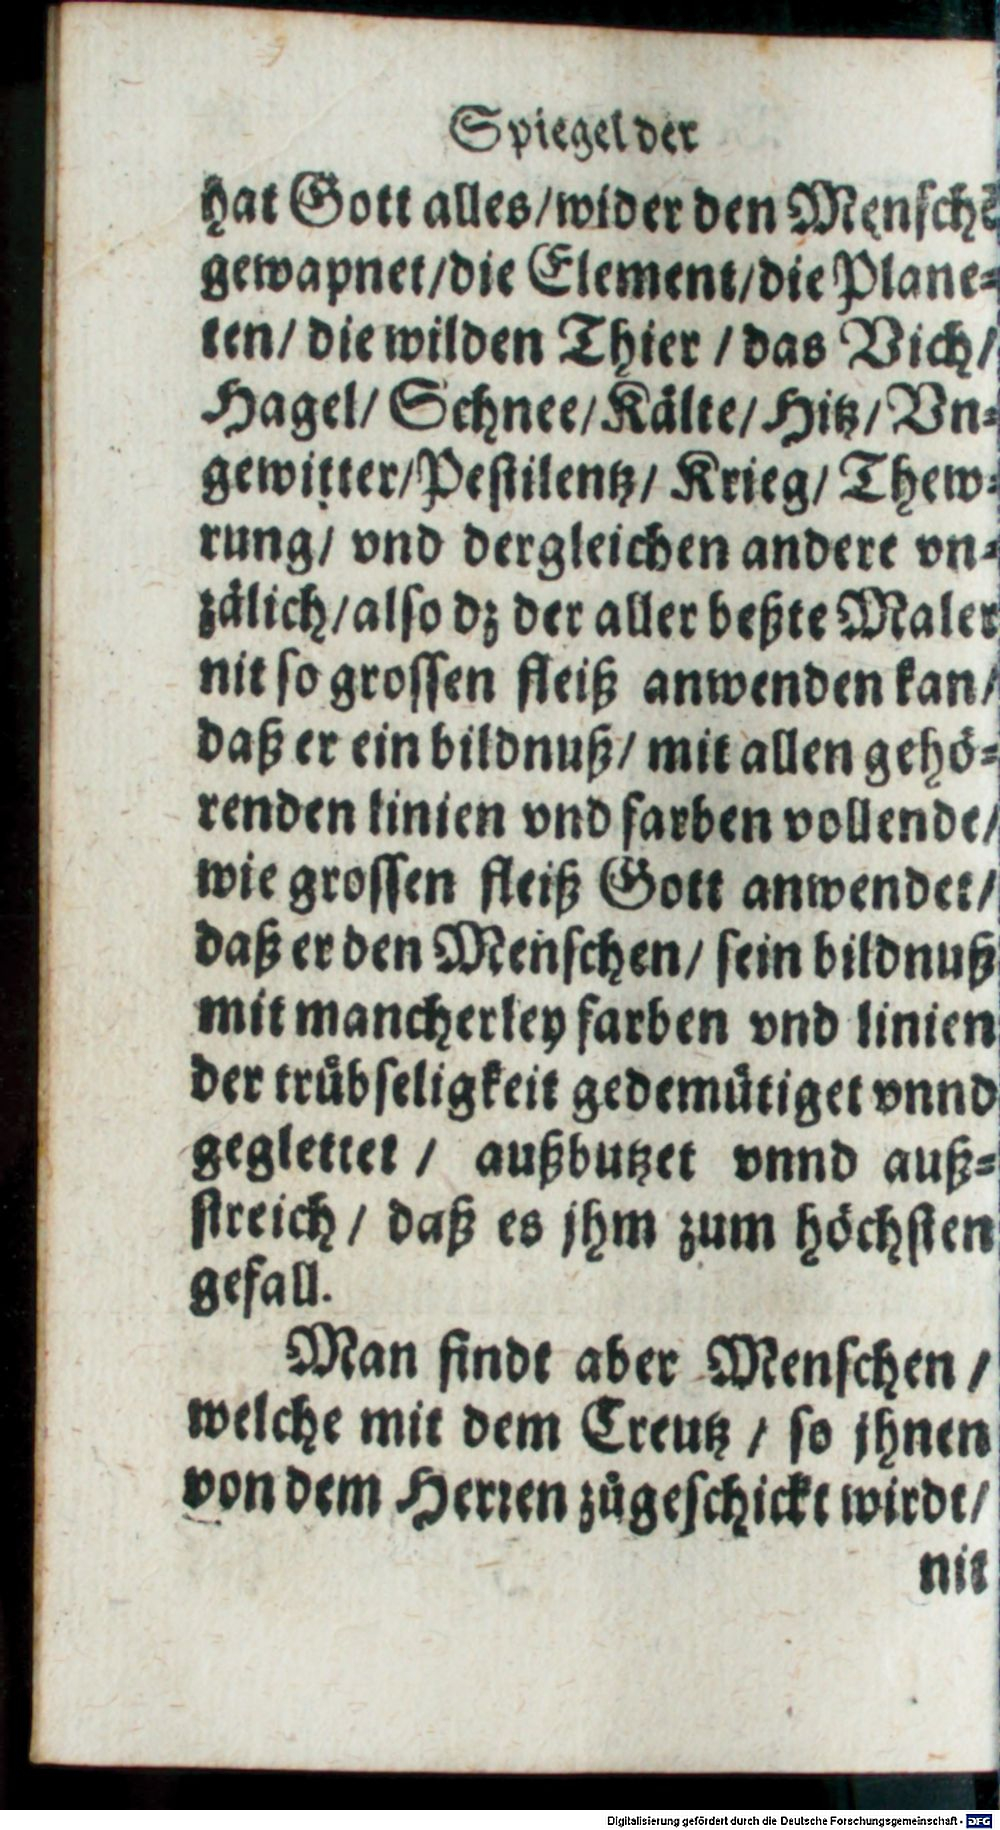 Spiegel der
hat Gott alles/wider den Menschẽ
gewapnet/die Element/die Plane-
ten/ die wilden Thier / das Vich/
Hagel/ Schnee/Kälte/ Hitz/ Vn-
gewitter/Pestilentz/ Krieg/ Thew-
rung/ vnd dergleichen andere vn-
zälich/also dz der aller beßte Maler
nit so grossen fleiß anwenden kan/
daß er ein bildnuß/ mit allen gehö-
renden linien vnd farben vollende/
wie grossen fleiß Gott anwendet/
daß er den Menschen/ sein bildnuß
mit mancherley farben vnd linien
der trůbseligkeit gedemůtiget vnnd
geglettet / außbutzet vnnd auß-
streich/ daß es jhm zum höchsten
gefall.
Man findt aber Menschen /
welche mit dem Creutz / so jhnen
von dem Herren zůgeschickt wirdt/
nit
Digitalisierung gefördert durch die Deutsche Forschungsgemeinschaft - DFG